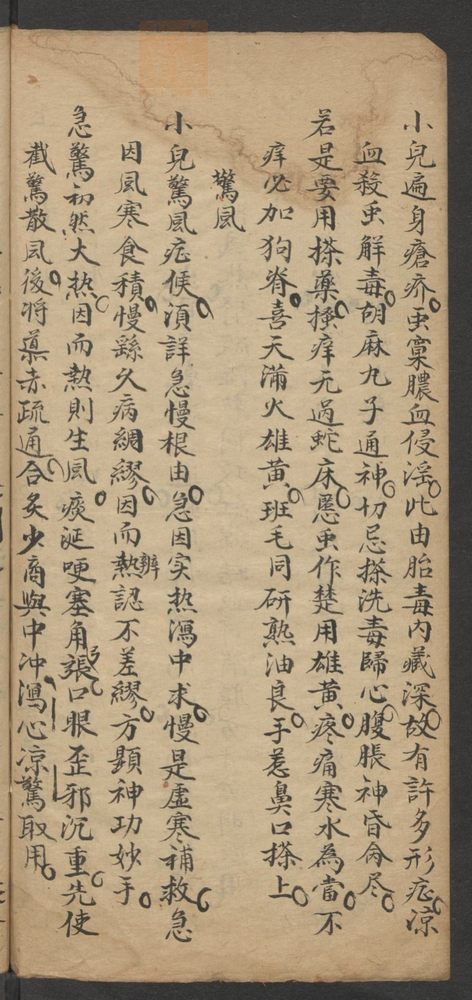 小兒遍身瘡疥虫窠膿血侵淫此由胎毒内藏深故有許多形症凉
血殺虫解毒胡麻九子通神切忌搽洗毒歸心腹脹神昏命尽
若是要用搽藥搔痒无過蛇床慝虫作楚用雄黄疼痛寒水為當不
痒必加狗脊喜天滿火雄黄班毛同研熟油良手惹鼻口搽上
驚風
小兒驚風症候湏詳急慢根由急因实热瀉中求慢是虛寒補救急
因風寒食積慢繇久病綢繆因而熱辨認不差繆方顕神功妙手
急驚初然大热因而熱則生風痰涎哽塞角張弓口眼歪邪沉重先使
截驚散風後将導赤疏通合灸少商與中冲瀉心凉驚取用